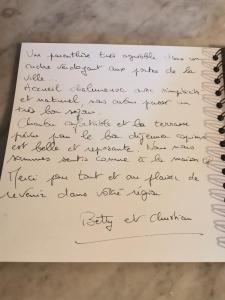 Une parenthèse très agréable dans un
cadre verdoyant aux portes de la
ville...
Accueil chaleureux avec simplicité
et naturel nous avons passé un
très bon séjour
Chambre confortable et la terrasse
prévue pour le bon déjeuner copieux
est belle et reposante. Nous nous
sommes sentis comme à la maison
Merci pour tout et au plaisir de
revenir dans votre région
Betty et Christian